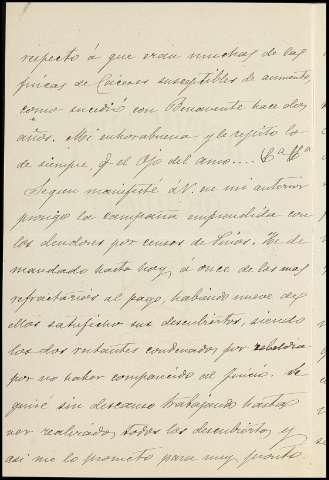 respecto á que eran muchas de las
fincas de Cáceres susceptibles de aumento,
como sucedió con Benavente hace dos
años. Mi enhorabuena y le repito lo
de siempre, q. el Ojo del amo....
Segun manifesté á V. en mi anterior
prosigo la campaña emprendida con
los deudores por censos de Sinos. He de
mandado hasta hoy, á once de los mas
refractarios al pago, habiendo nueve de
ellos satisfecho sus descubiertos, siendo
los dos restantes condenados por rebeldia
por no haber comparecido al juicio. Se
guiré sin descanso trabajando hasta
ver realizados todos los descubiertos y
asi me lo prometo para muy pronto.